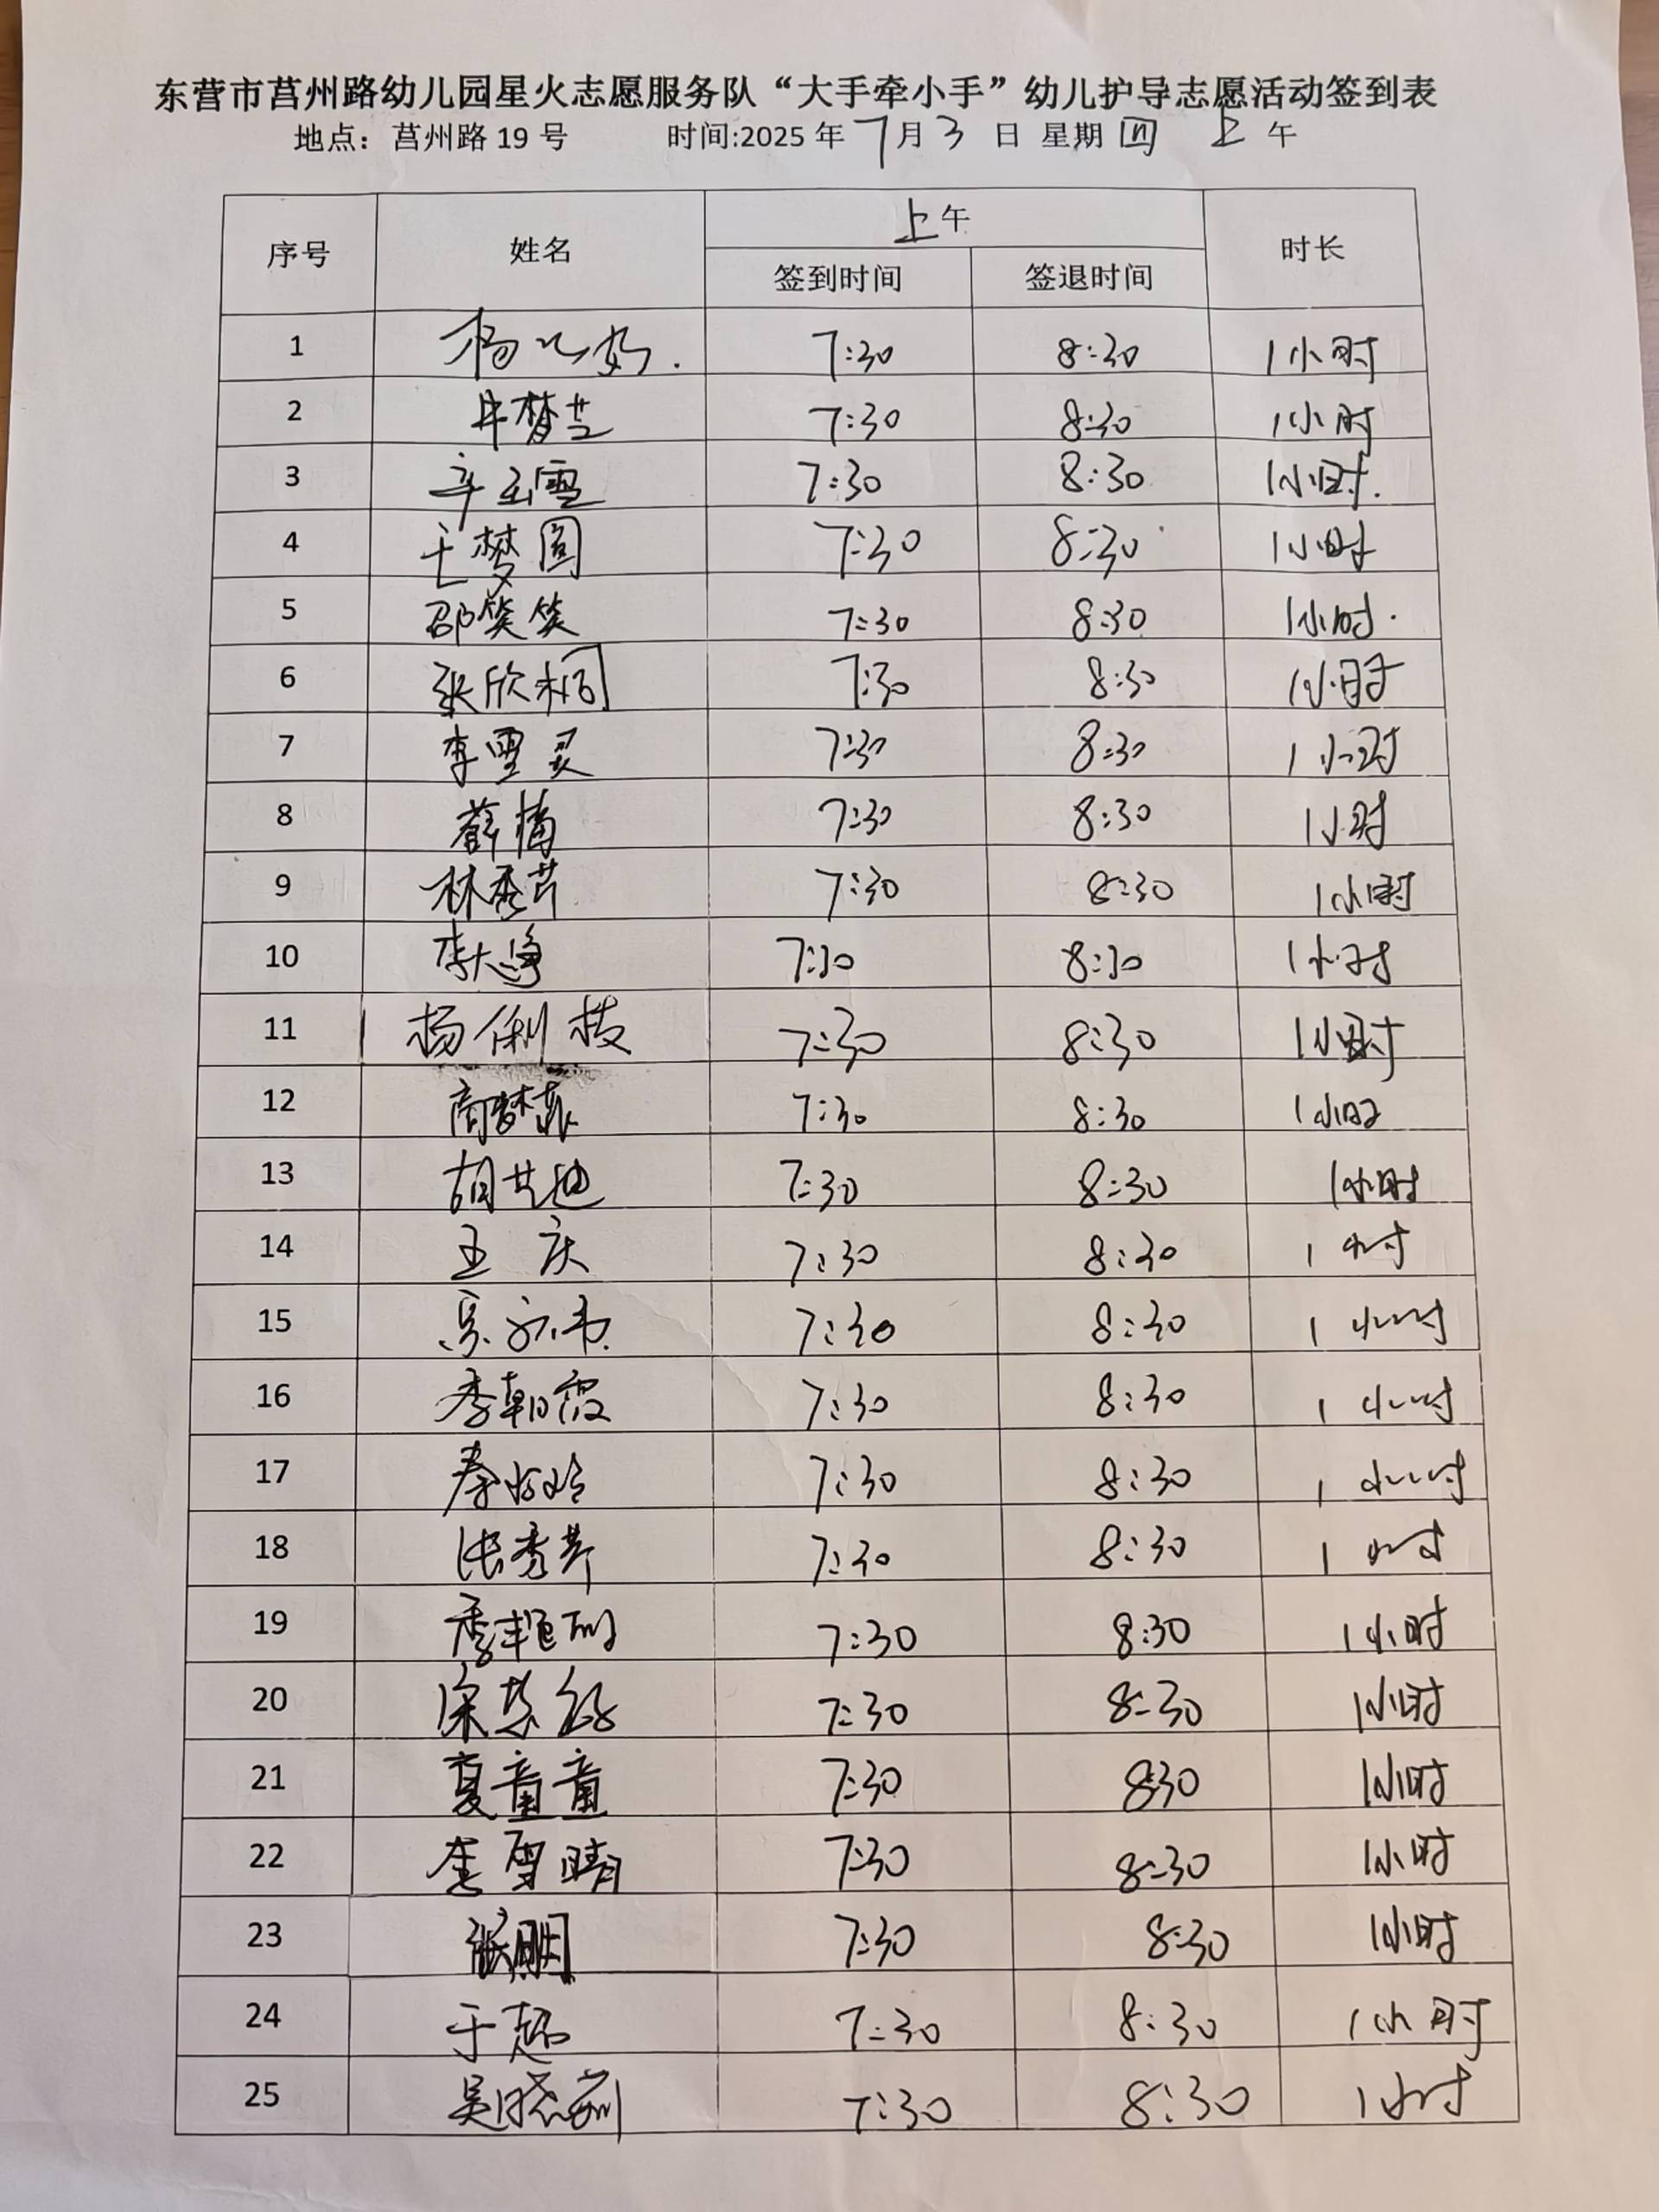 东营市莒州路幼儿园星火志愿服务队“大手牵小手”幼儿护导志愿活动签到表
地点：莒州路 19 号 时间:2025 年 7 月 3 日 星期 四 上 午
序号 姓名 上午 时长
签到时间 签退时间
1 7:30 8:30 1小时
2 牟梦兰 7:30 8:30 1小时
3 辛玉雪 7:30 8:30 1小时.
4 梦圆 7:30 8:30 1小时
5 邵笑笑 7:30 8:30 1小时.
6 张欣桐 7:30 8:30 1小时
7 李雪灵 7:30 8:30 1小时
8 薛楠 7:30 8:30 1小时
9 林秀芹 7:30 8:30 1小时
10 李大净 7:30 8:30 1小时
11 杨俐枝 7:30 8:30 1小时
12 商梦菲 7:30 8:30 1小时
13 胡艾迪 7:30 8:30 1小时
14 王庆 7:30 8:30 1小时
15 7:30 8:30 1小时
16 李朝霞 7:30 8:30 1小时
17 秦 7:30 8:30 1小时
18 张秀芹 7:30 8:30 1小时
19 季艳丽 7:30 8:30 1小时
20 7:30 8:30 1小时
21 夏童童 7:30 8:30 1小时
22 李雪晴 7:30 8:30 1小时
23 张朋 7:30 8:30 1小时
24 于超 7:30 8:30 1小时
25 吴晓莉 7:30 8:30 1小时